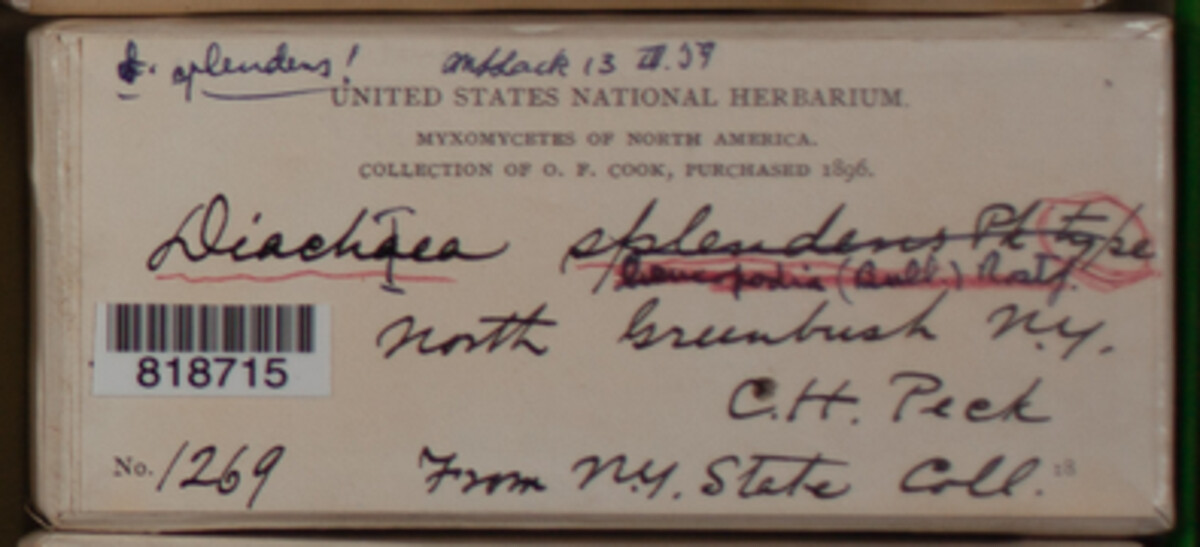 splendens! 13 III. 59
UNITED STATES NATIONAL HERBARIUM.
MYXOMYCETES OF NORTH AMERICA.
COLLECTION OF O. F. COOK, PURCHASED 1896.
Diachaea splendens Pk type
leucopodia (Bull.) Rostf.
North Greenbush N.Y.
818715
C.H. Peck
No. 1269 From N.Y. State Coll. 18